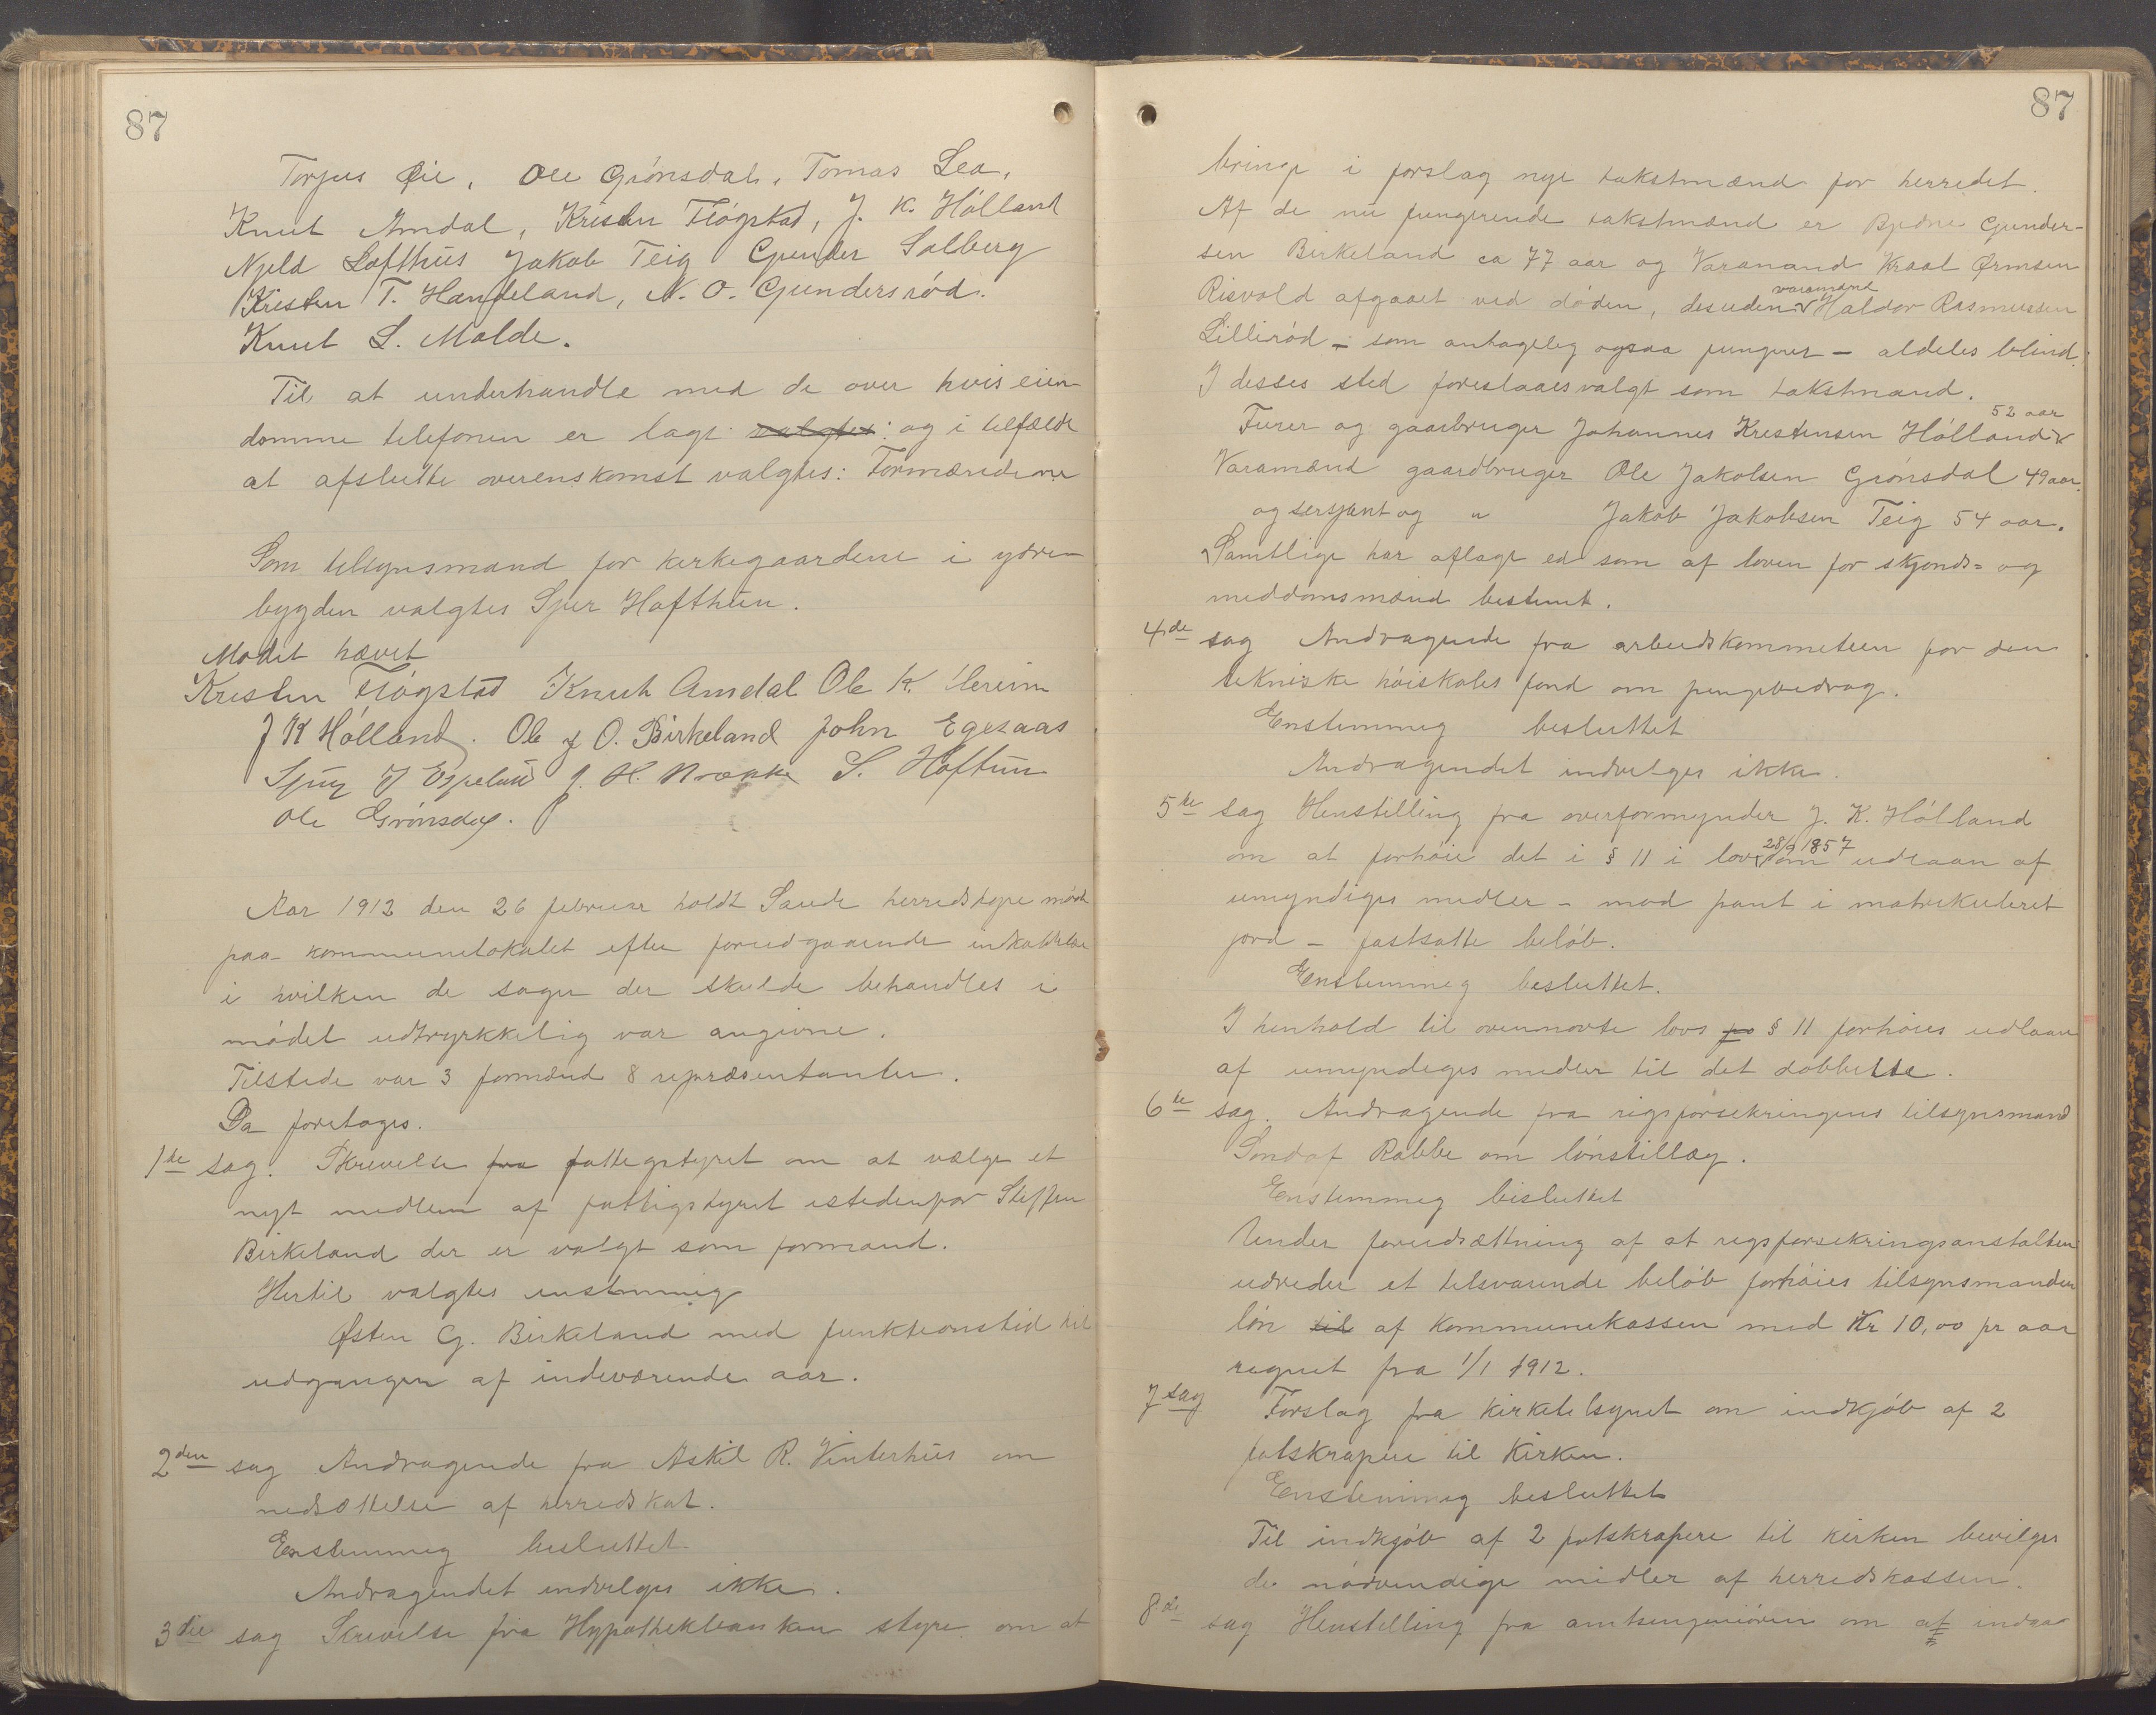 87
Torjus Øie, Ole Grónsdal, Tomas Lea,
Knut Amdal, Kristen Flógstad, J. K. Hólland
Njeld Lofthus Jakob Teig Gunder Salberg
Kristen T. Handeland, N. O. Gundersród.
Knut L. Molde.
Til at underhandle med de over hvis eien-
domme telefonen er lagt valgtes: og i tilfælde
at afslutte overenskomst valgtes: Formændene
Som tilsynsmand for kirkegaardene i ydre
bygden valgtes Sjur Hofthun.
Mødet hævet
Kristen Flógstad Knut Amdal Ole K.
J K Hólland. Ole J O. Birkeland John Egesaas
J Espeland J. H. S. Hoftun
Ole Grónsdal.
Aar 1912 den 26 februar holdt Saude herredstyre móde
paa kommunelokalet efter forudgaaende indkaldelse
i hvilken de sager der skulde behandles i
módet udtrykkelig var angivne.
Tilstede var 3 formænd 8 repræsentanter.
Da foretoges.
1ste sag. Skrivelse fra fattigstyret om at vælge et
nyt medlem af fattigstyret istedenfor Steffen
Birkeland der er valgt som formand.
Hertil valgtes enstemmig
Østen G. Birkeland med funktionstid til
udgangen af indeværende aar.
2den sag Andragende fra Askil R. Vinterhus om
nedsættelse af herredskat.
Enstemmig besluttet
Andragendet indvilges ikke.
3die sag Skrivelse fra Hypothekbanken styre om at
87
bringe i forslag nye takstmænd for herredet.
Af de nu fungerende takstmænd er Bjedne Gunder-
sen Birkeland ca 77 aar og Varamand Kraal Ørmsen
Risvold afgaaet ved dóden, desuden varamand Haldor Rasmussen
Lilleród – som antagelig ogsaa fungerer – aldeles blind.
I desses sted foreslaaes valgt som takstmænd.
Furer og gaardbruger Johannes Kristensen Hólland 52 aar
Varamænd gaardbruger Ole Jakobsen Grónsdal 49 aar.
og sersjant og " Jakob Jakobsen Teig 54 aar.
Samtlige har aflagt ed som af loven for skjónds- og
meddomsmænd bestemt.
4de sag Andragende fra arbeidskommeteen for den
tekniske hóiskoles fond om pengebedrag.
Enstemmig besluttet
Andragendet indvilges ikke.
5te sag Henstilling fra overformynder J. K. Hólland
om at forhóie det i § 11 i lov 28/9 1857 om udlaan af
umyndiges midler – mod pant i matrikuleret
jord – fastsatte belób.
Enstemmig besluttet.
I henhold til ovennevnte lovs pr § 11 forhóies udlaan
af umyndiges midler til det dobbelte.
6te sag. Andragende fra rigsforsekringens tilsynsmand
Sondof Rabbe om lónstillæg.
Enstemmig besluttet
Under forudsættning af at rigsforsekringsanstalten
udreder et tilsvarende belób forhóies tilsynsmanden
lón til af kommunekassen med Kr 10,00 pr aar
regnet fra 1/1 1912.
7 sag Forslag fra kirketilsynet om indkjób af 2
fotskrapere til kirken.
Enstemmig besluttet
Til indkjób af 2 fotskrapere til kirken bevilges
de nódvendige midler af herredskassen.
8de sag Henstilling fra amtsingenióren om at indgaa